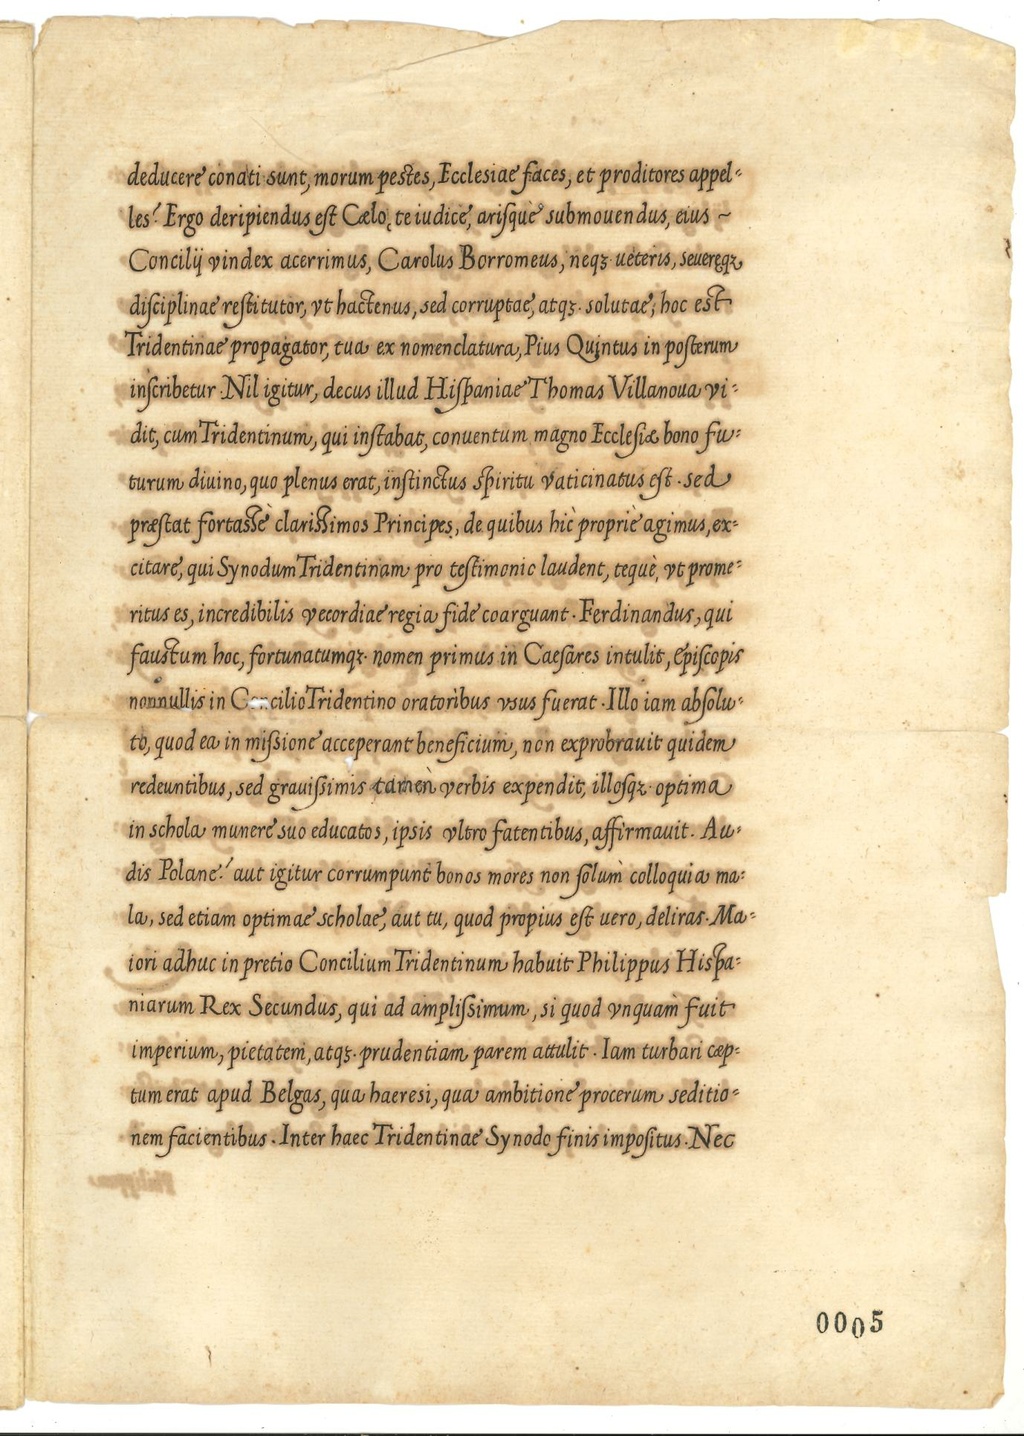 deducere conati sunt, morum pestes, Ecclesiae faces, et proditores appel=
les? Ergo deripiendus est Cælo, te iudice, arisque submouendus, eius ~
Concilij vindex acerrimus, Carolus Borromeus, neqʒ ueteris, seueręqʒ
disciplinae restitutor, vt hactenus, sed corruptae, atqʒ. solutae; hoc est
Tridentinae propagator, tua ex nomenclatura, Pius Quintus in posterum
inscribetur. Nil igitur, decus illud Hispaniae Thomas Villanoua vi=
dit, cum Tridentinum, qui instabat, conuentum magno Ecclesiæ bono fu=
turum diuino, quo plenus erat, instinctus spiritu vaticinatus est. sed
præstat fortassè clarissimos Principes, de quibus hìc propriè agimus, ex=
citare, qui Synodum Tridentinam pro testimonio laudent, tequè, vt prome=
ritus es, incredibilis vecordiae regia fide coarguant. Ferdinandus, qui
faustum hoc, fortunatumqʒ. nomen primus in Caesares intulit, Episcopis
nonnullis in Concilio Tridentino oratoribus vsus fuerat. Illo iam absolu=
to, quod ea in missione acceperant beneficium, non exprobrauit quidem
redeuntibus, sed grauissimis tamen verbis expendit, illosqʒ. optima
in schola munere suo educatos, ipsis vltro fatentibus, affirmauit. Au=
dis Polane? aut igitur corrumpunt bonos mores non solùm colloquia ma=
la, sed etiam optimae scholae, aut tu, quod propius est uero, deliras. Ma=
iori adhuc in pretio Concilium Tridentinum habuit Philippus Hispa=
niarum Rex Secundus, qui ad amplissimum, si quod vnquam fuit
imperium, pietatem, atqʒ. prudentiam parem attulit. Iam turbari cæp=
tum erat apud Belgas, qua haeresi, qua ambitione procerum seditio=
nem facientibus. Inter haec Tridentinae Synodo finis impositus. Nec
0005